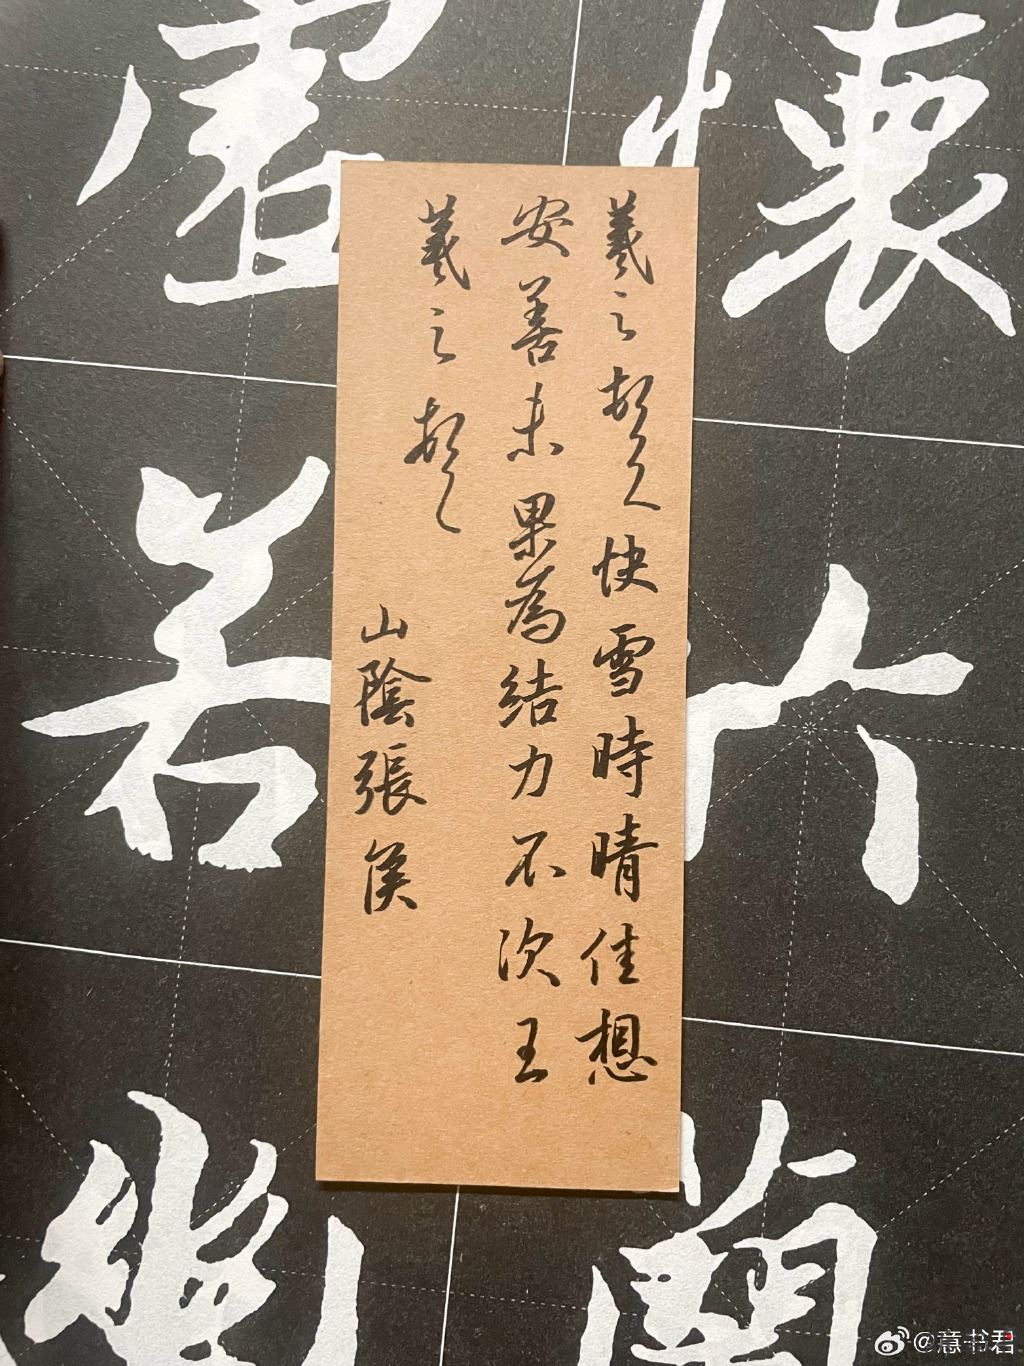 羲之頓首快雪時晴佳想
安善未果為結力不次王
羲之頓首
山陰張侯
懷
若
幽
蘭
@意书君